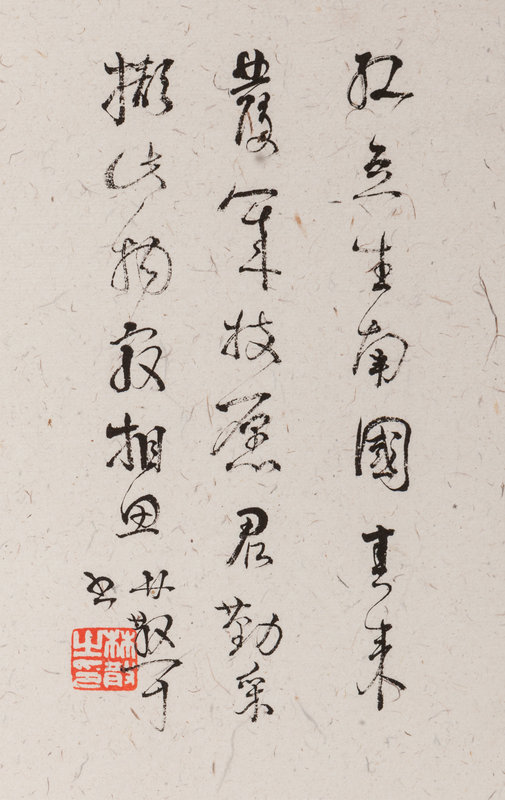 紅豆生南國春來
發幾枝願君勤采
擷此物最相思
林散耳
書
林散之印